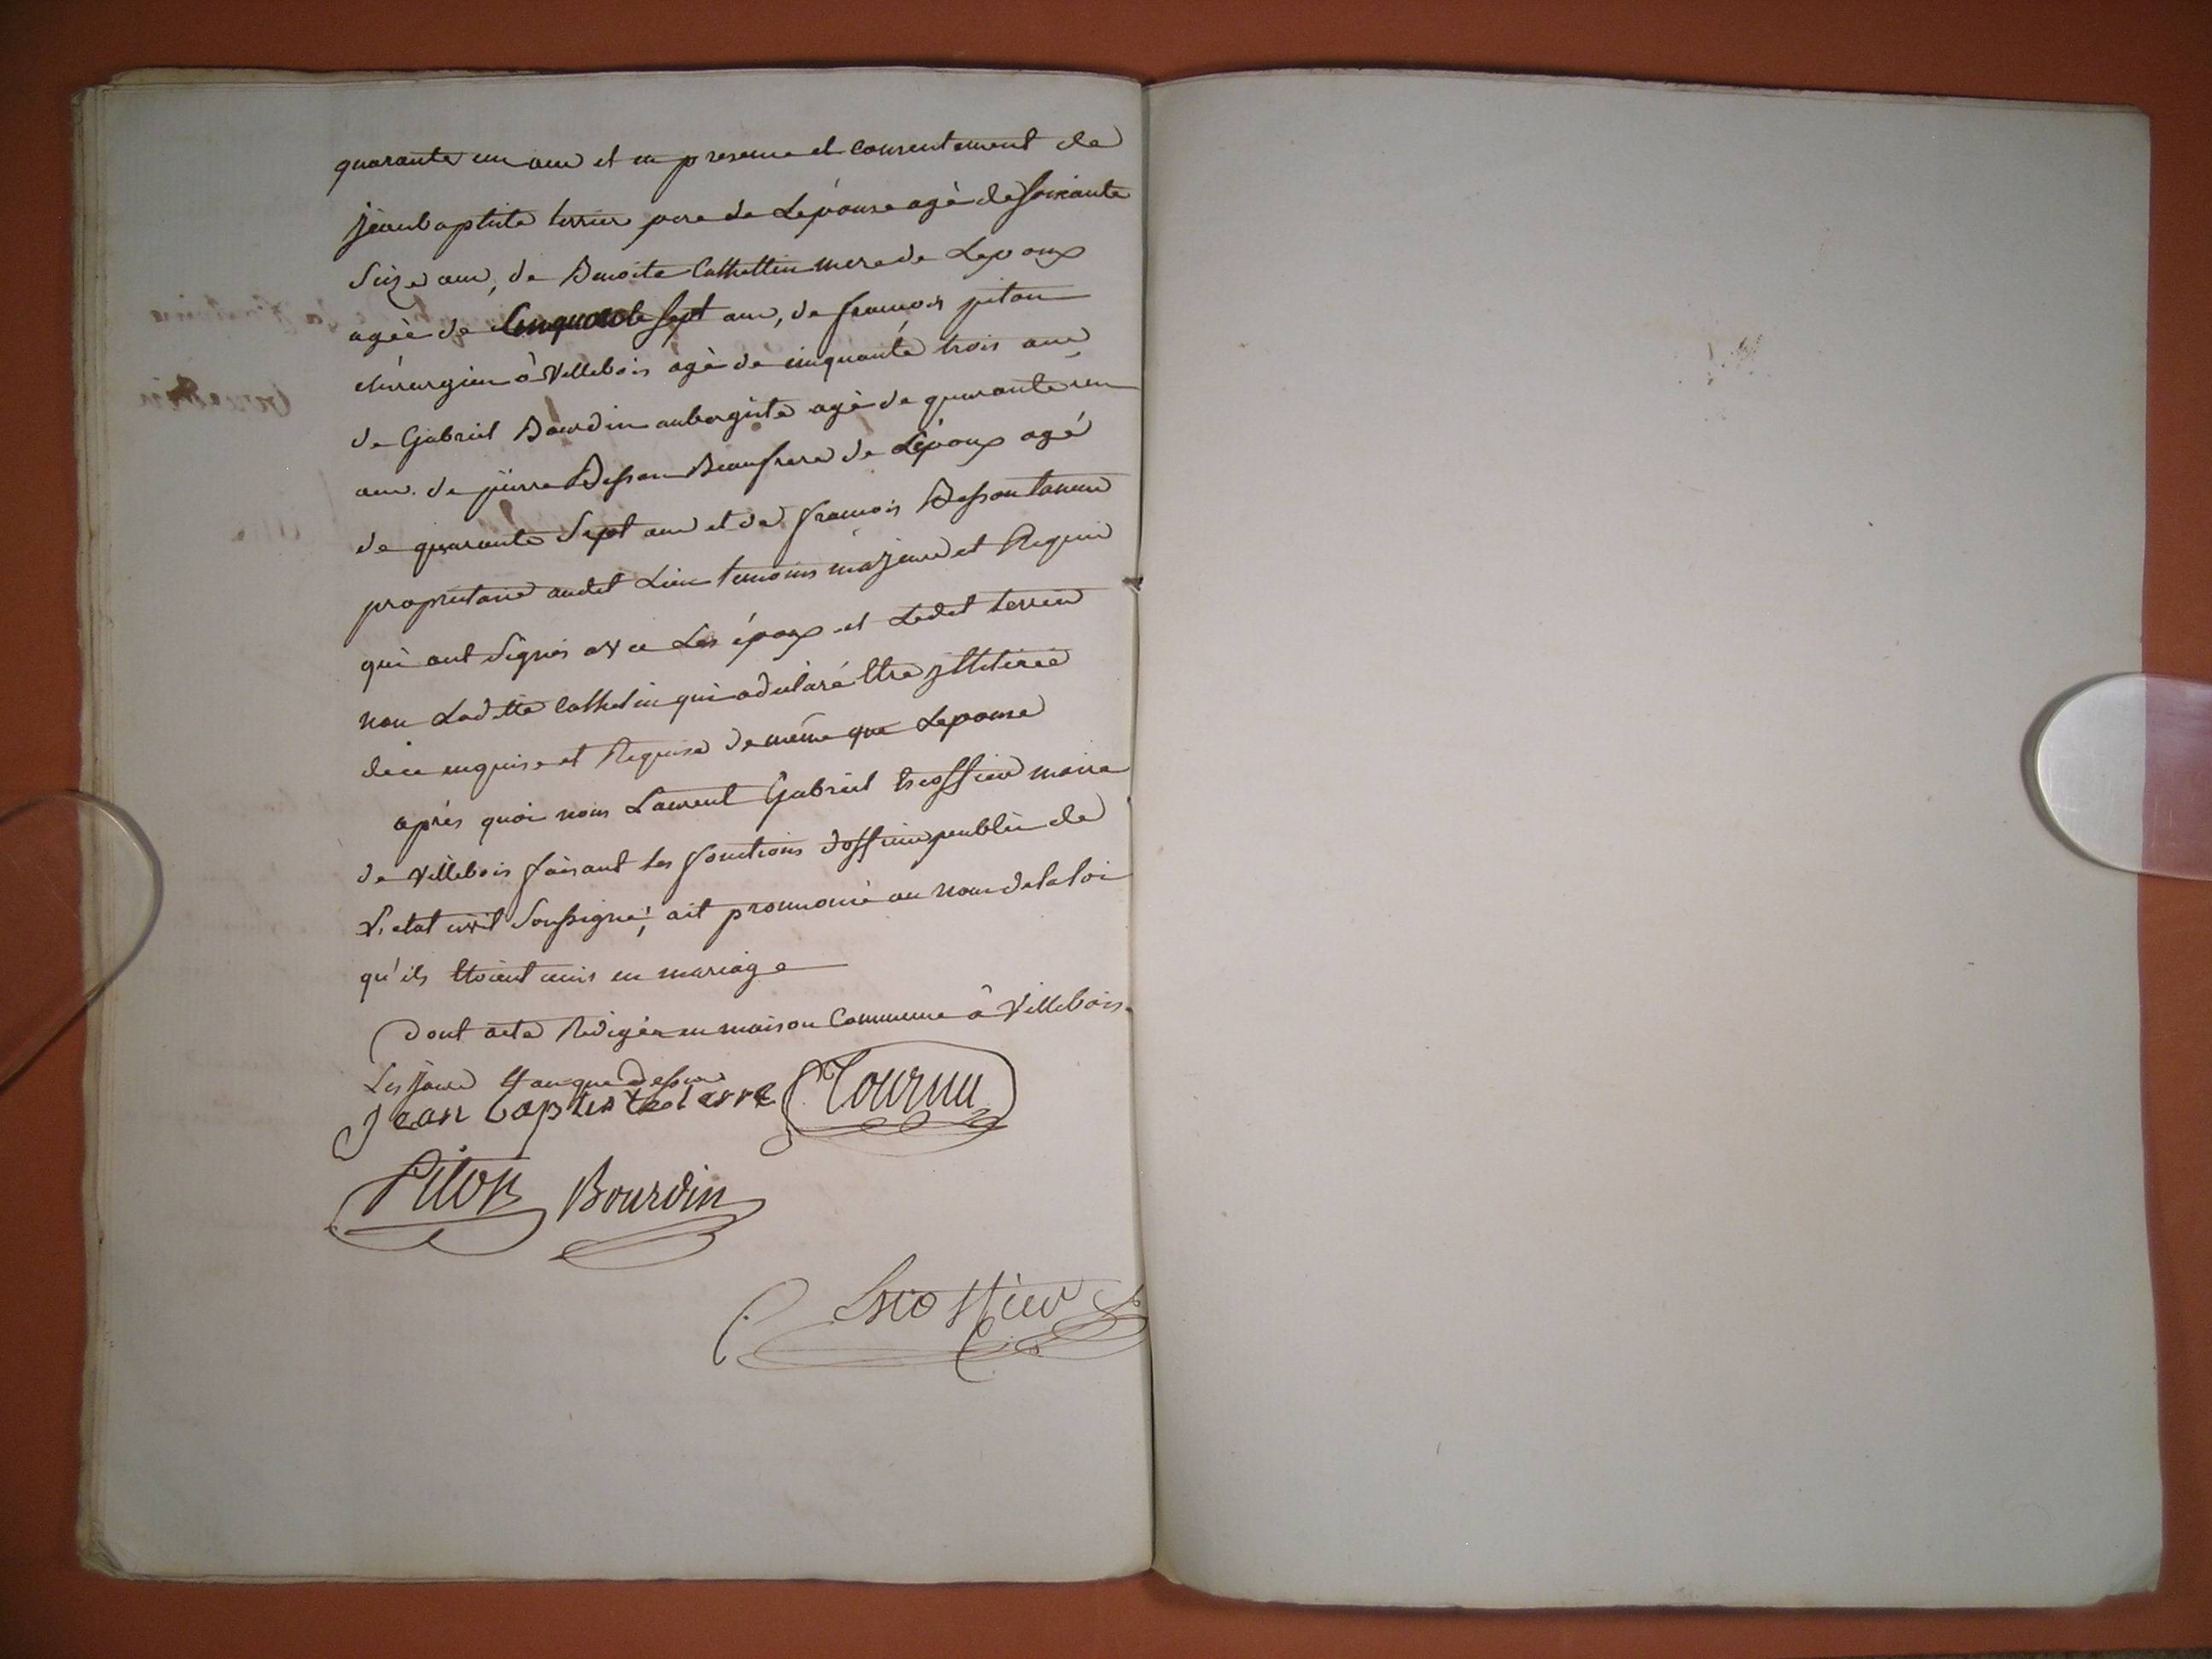 quarante un ans et en presence et consentement de
jean baptiste terrier pere de Lépouse agé de soixante
Seize ans, de Benoite Cathettin mere de Lepoux
agée de Cinquante sept ans, de françois piton
chirurgien à Villebois agé de cinquante trois ans
de Gabriel Bourdin aubergiste agé de quarante un
ans. de pierre Besson Beaufrere de Lépoux agé
de quarante Sept ans et de francois Besson tous
propriétaire audit Lieu temoins majeurs et Requis
qui ont Signés avec Les époux et Ledit terrier
non Laditte Cathetin qui a déclaré être illitirée
de ce enquise et Requise de même que Lepouse
après quoi nous Laurent Gabriel trossieu maire
de Villebois faisant les fonctions d'officier public de
L'etat civil Soussigné, ait prononcé au nom de la loi
qu'ils étoient unis en mariage
Dont acte Rédigée en maison Commune à Villebois.
Les jour et an que dessus
Jean baptiste terre Tournu
Piton Bourdin